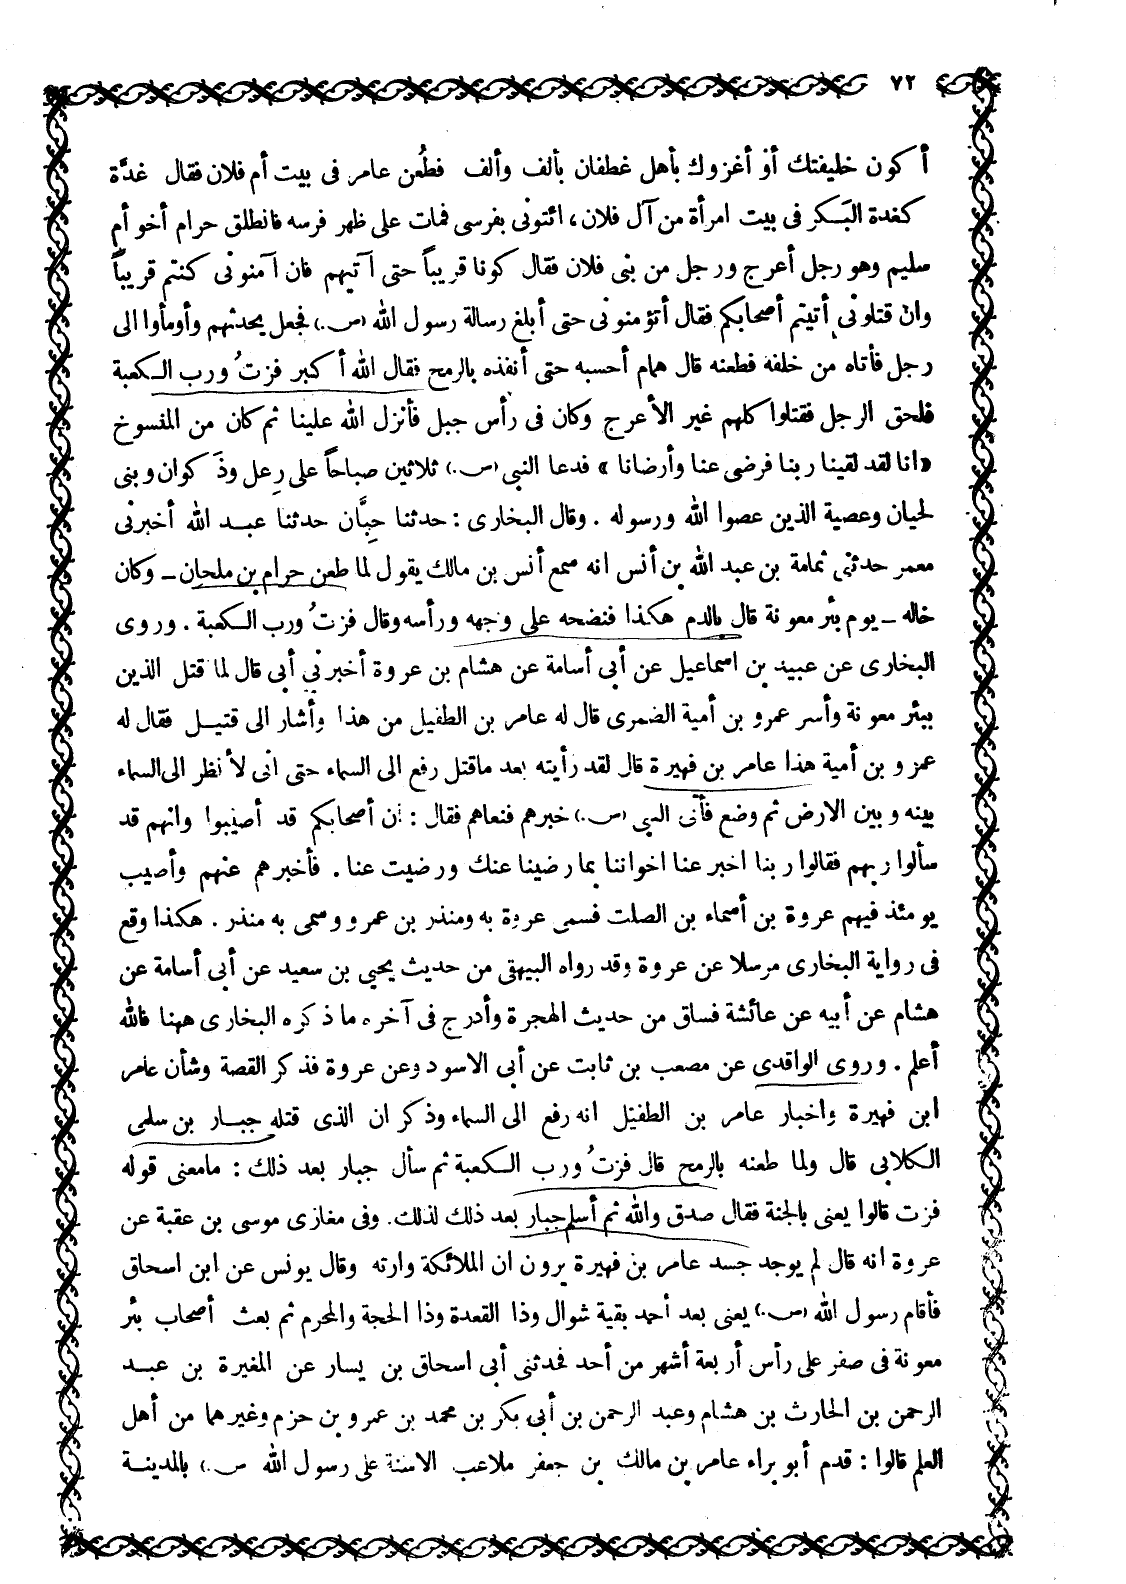 ٧٢
أكون خليفتك أو أغزوك بأهل غطفان بألف وألف فطُعن عامر فى بيت أم فلان فقال غدَّة
كغدة البَكر فى بيت امرأة من آل فلان، ائتونى بفرسى فمات على ظهر فرسه فانطلق حرام أخو أم
سليم وهو رجل أعرج ورجل من بنى فلان فقال كونا قريباً حتى آتيهم فان آمنونى كنتم قريباً
وان قتلونى أتيتم أصحابكم فقال أتؤمنونى حتى أبلغ رسالة رسول الله (ص.) فجعل يحدثهم وأومأوا الى
رجل فأتاه من خلفه فطعنه قال همام أحسبه حتى أنفذه بالرمح فقال الله أكبر فزتُ ورب الكعبة
فلحق الرجل فقتلوا كلهم غير الأعرج وكان فى رأس جبل فأنزل الله علينا ثم كان من المنسوخ
«انا لقد لقينا ربنا فرضى عنا وأرضانا» فدعا النبى (ص.) ثلاثين صباحاً على رِعل وذَكوان وبنى
لحيان وعصية الذين عصوا الله ورسوله . وقال البخارى : حدثنا حِبَّان حدثنا عبد الله أخبرنى
معمر حدثنى ثمامة بن عبد الله بن أنس انه سمع أنس بن مالك يقول لما طعن حرام بن ملحان ـ وكان
خاله ـ يوم بئر معونة قال بالدم هكذا فنضحه على وجهه ورأسه وقال فزتُ ورب الكعبة . وروى
البخارى عن عبيد بن اسماعيل عن أبى أسامة عن هشام بن عروة أخبرنى أبى قال لما قتل الذين
ببئر معونة وأسر عمرو بن أمية الضمرى قال له عامر بن الطفيل من هذا وأشار الى قتيل فقال له
عمرو بن أمية هذا عامر بن فهيرة قال لقد رأيته بعد ماقتل رفع الى السماء حتى انى لأنظر الى السماء
بينه وبين الارض ثم وضع فأتى النبى (ص.) خبرهم فنعاهم فقال : ان أصحابكم قد أصيبوا وانهم قد
سألوا ربهم فقالوا ربنا اخبر عنا اخواننا بما رضينا عنك ورضيت عنا . فأخبرهم عنهم وأصيب
يومئذ فيهم عروة بن أسماء بن الصلت فسمى عروة به ومنذر بن عمرو وسمى به منذر . هكذا وقع
فى رواية البخارى مرسلا عن عروة وقد رواه البيهقى من حديث يحيى بن سعيد عن أبى أسامة عن
هشام عن أبيه عن عائشة فساق من حديث الهجرة وأدرج فى آخره ما ذكره البخارى ههنا فالله
أعلم . وروى الواقدى عن مصعب بن ثابت عن أبى الاسود وعن عروة فذكر القصة وشأن عامر
ابن فهيرة واخبار عامر بن الطفيل انه رفع الى السماء وذكر ان الذى قتله جبار بن سلمى
الكلابى قال ولما طعنه بالرمح قال فزتُ ورب الكعبة ثم سأل جبار بعد ذلك : مامعنى قوله
فزت قالوا يعنى بالجنة فقال صدق والله ثم أسلم جبار بعد ذلك لذلك. وفى مغازى موسى بن عقبة عن
عروة انه قال لم يوجد جسد عامر بن فهيرة يرون ان الملائكة وارته وقال يونس عن ابن اسحاق
فأقام رسول الله (ص.) يعنى بعد أحد بقية شوال وذا القعدة وذا الحجة والمحرم ثم بعث أصحاب بئر
معونة فى صفر على رأس أربعة أشهر من أحد فحدثنى أبى اسحاق بن يسار عن المغيرة بن عبد
الرحمن بن الحارث بن هشام وعبد الرحمن بن أبى بكر بن محمد بن عمرو بن حزم وغيرهما من أهل
العلم قالوا : قدم أبو براء عامر بن مالك بن جعفر ملاعب الاسنة على رسول الله ص.) بالمدينة